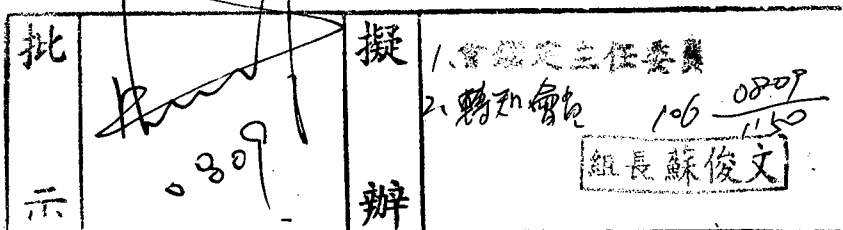 批示
.0809
擬辦
1、會鑑定主任委員
2、轉知會員
106 0809
1150
組長蘇俊文